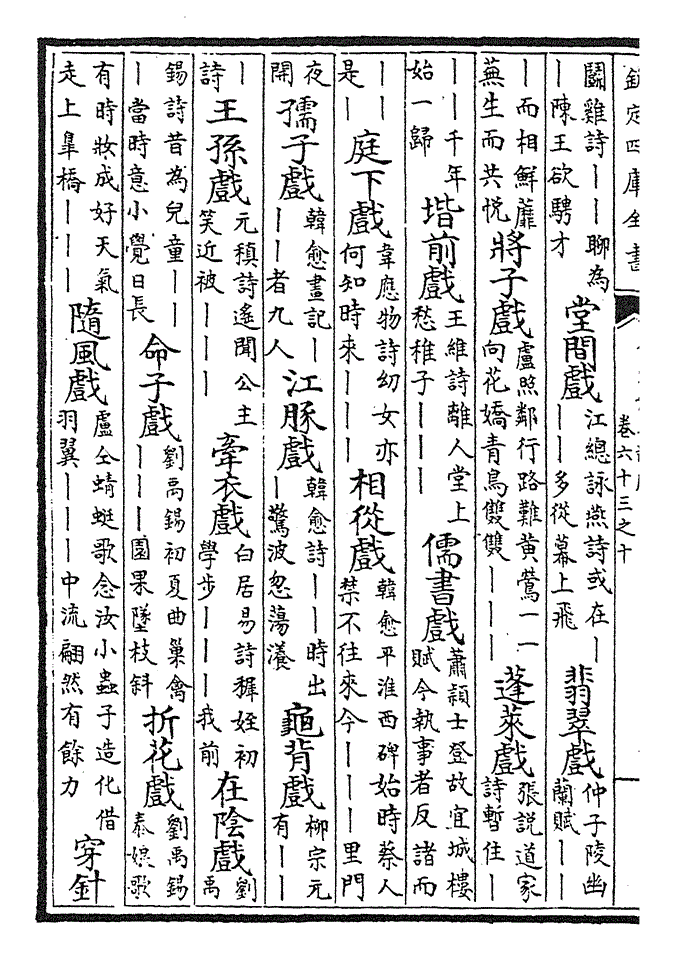 欽定四庫全書
卷六十三之十
鬬雞詩――聊為―陳王欲騁才 堂間戲 江總詠燕詩或在――多從幕上飛 翡翠戲 仲子陵幽蘭賦――
―而相鮮蘼蕪生而共悦 將子戲 盧照鄰行路難黄鶯一一向花嬌青鳥雙雙――― 蓬萊戲 張説道家詩暫住―
――千年始一歸 堦前戲 王維詩離人堂上愁稚子――― 儒書戲 蕭頴士登故宜城樓賦今執事者反諸而
――是― 庭下戲 韋應物詩幼女亦何知時來――― 相從戲 韓愈平淮西碑始時蔡人禁不往來今―――里門
夜開 孺子戲 韓愈畫記―――者九人 江豚戲 韓愈詩――時出―驚波忽蕩瀁 龜背戲 柳宗元有――
―詩 王孫戲 元稹詩遙聞公主笑近被――― 牽衣戲 白居易詩穉姪初學步―――我前 在陰戲 劉禹
錫詩昔為兒童―――當時意小覺日長 命子戲 劉禹錫初夏曲巢禽―――園果墜枝斜 折花戲 劉禹錫泰娘歌
有時妝成好天氣走上臯橋――― 隨風戲 盧仝蜻蜓歌念汝小蟲子造化借羽翼―――中流翩然有餘力 穿針